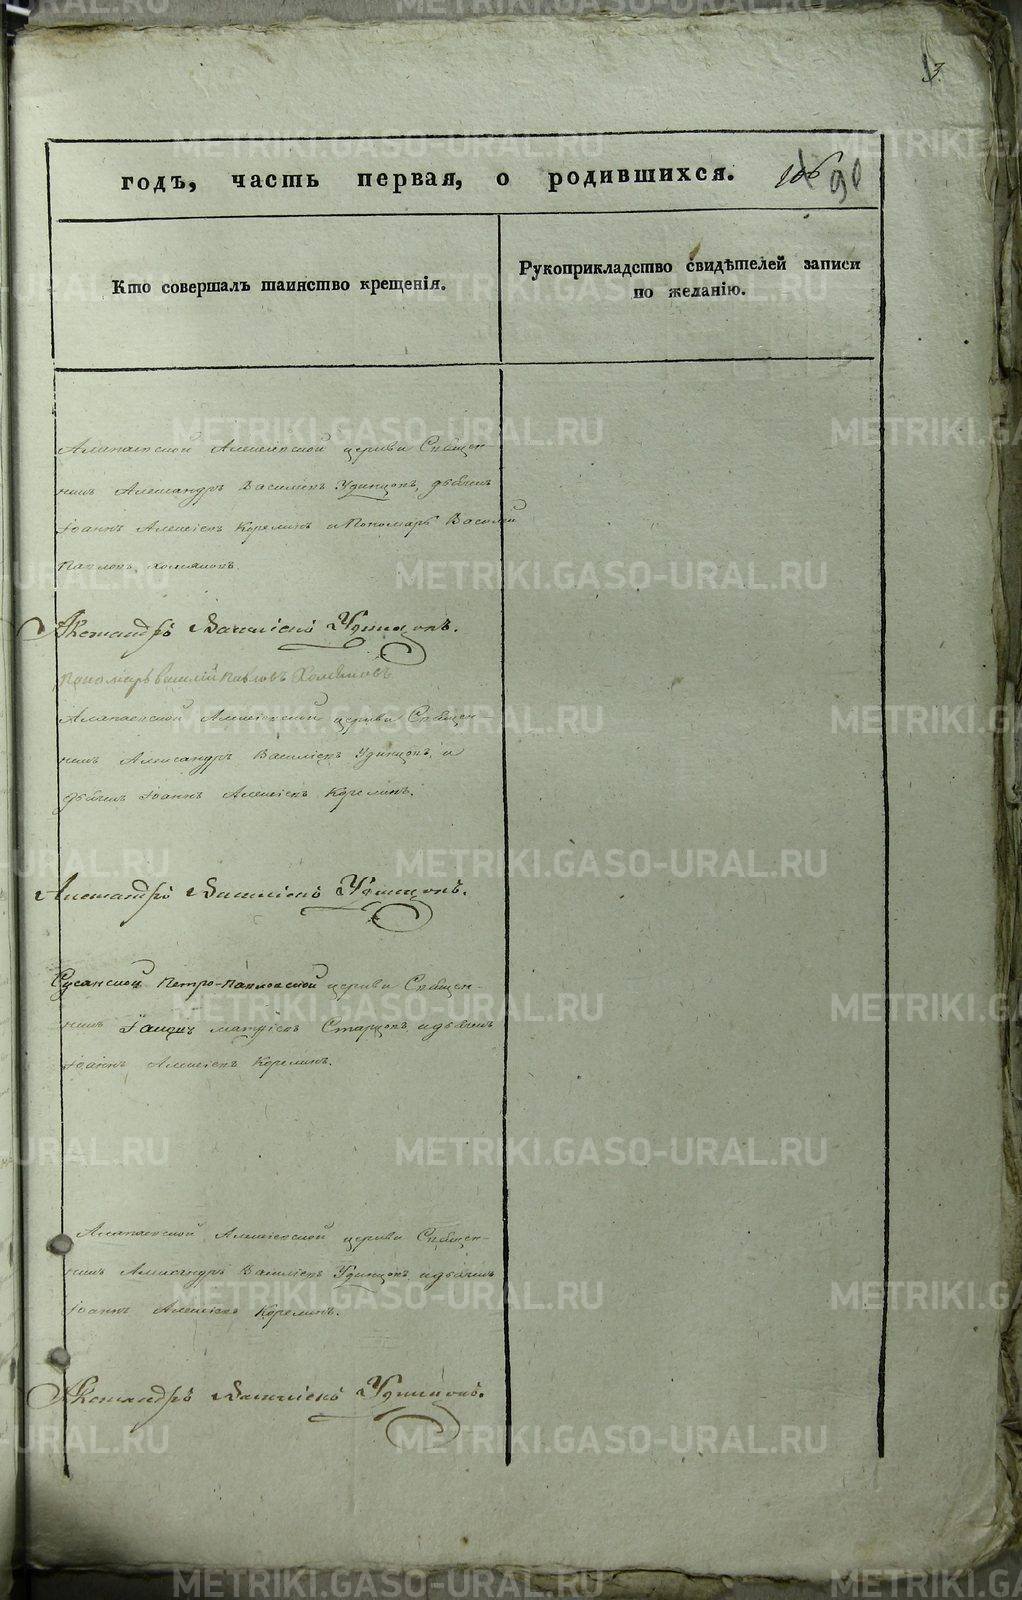 3.
годъ, часть первая, о родившихся. 106 90
Кто совершалъ таинство крещенія.
Рукоприкладство свидѣтелей записи
по желанію.
Алапаевской Алексіевской церкви Священ-
никъ Александръ Василіевъ Удинцовъ, дьячекъ
Іоаннъ Алексіевъ Корелинъ и Пономарь Василій
Павловъ Хомяковъ.
Александръ Василіевъ Удинцовъ.
Пономарь Василій Павловъ Хомяковъ
Алапаевской Алексіевской церкви Священ-
никъ Александръ Василіевъ Удинцовъ, и
дьячекъ Іоаннъ Алексіевъ Корелинъ.
Александръ Василіевъ Удинцовъ.
Сусанской Петро-Павловской церкви Священ-
никъ Матѳіевъ Старцовъ и дьячекъ
Іоаннъ Алексіевъ Корелинъ.
Алапаевской Алексіевской церкви Священ-
никъ Александръ Василіевъ Удинцовъ и дьячекъ
Іоаннъ Алексіевъ Корелинъ.
Александръ Василіевъ Удинцовъ.
METRIKI.GASO-URAL.RU